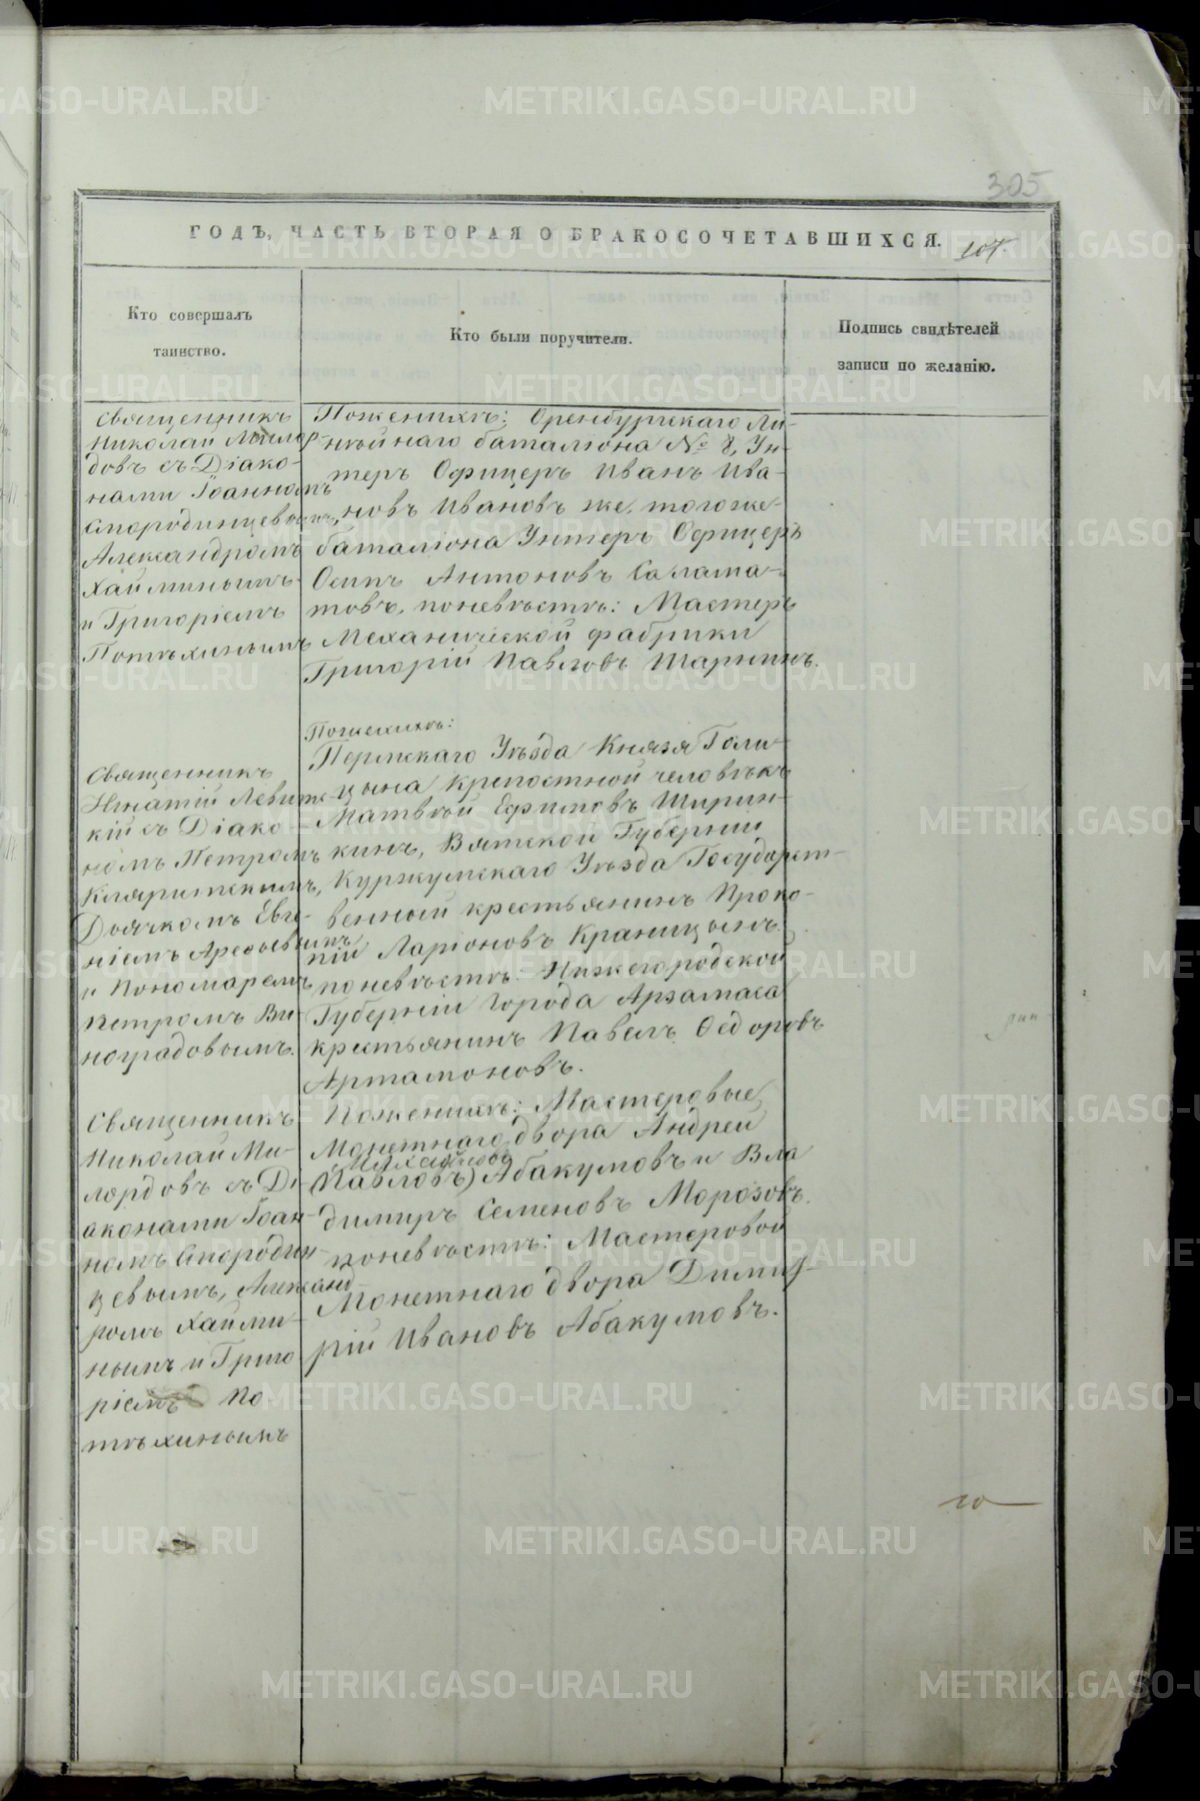 305
ГОДЪ, ЧАСТЬ ВТОРАЯ О БРАКОСОЧЕТАВШИХСЯ.
107.
Кто совершалъ
таинство.
Кто были поручители.
Подпись свидѣтелей
записи по желанію.
Священникъ
Николай Милор
довъ съ Діако-
нами Іоанномъ
Смородинцевымъ,
Александромъ
Хайминымъ
и Григоріемъ
Потѣхинымъ
Поженихѣ: Оренбургскаго Ли-
нѣйнаго баталіона № 8, Ун-
теръ Офицеръ Иванъ Ива-
новъ Ивановъ же, тогоже
баталіона Унтеръ Офицеръ
Осипъ Антоновъ Салама-
товъ, поневѣстѣ: Мастеръ
Механической фабрики
Григорій Павловъ Шарнинъ.
Священникъ
Игнатій Левит-
кій съ Діако-
номъ Петромъ
Кляритскимъ,
Дьячкомъ Евге-
ніемъ Арефьевымъ
и Пономаремъ
Петромъ Ви-
ноградовымъ.
Поженихѣ:
Пермскаго Уѣзда Князя Голи-
цына крепостной человѣкъ
Матвѣй Ефимовъ Ширин-
кинъ, Вятской Губерніи
Куржумскаго Уѣзда Государст-
венный крестьянинъ Проко-
пій Ларіоновъ Краницынъ
поневѣстѣ: Нижегородской
Губерніи города Арзамаса
крестьянинъ Павелъ Федоровъ
Артамоновъ.
Священникъ
Николай Ми-
лордовъ съ Ді
аконами Іоан-
номъ Смородин-
цевымъ, Александ
ромъ Хайми-
нымъ и Григо
ріемъ По
тѣхинымъ
Поженихѣ: Мастеровые
Монетнаго двора Андрей
Михайловъ
(Павловъ) Абакумовъ и Вла
димиръ Семеновъ Морозовъ.
поневѣстѣ: Мастеровой
Монетнаго двора Димит-
рій Ивановъ Абакумовъ.
METRIKI.GASO-URAL.RU